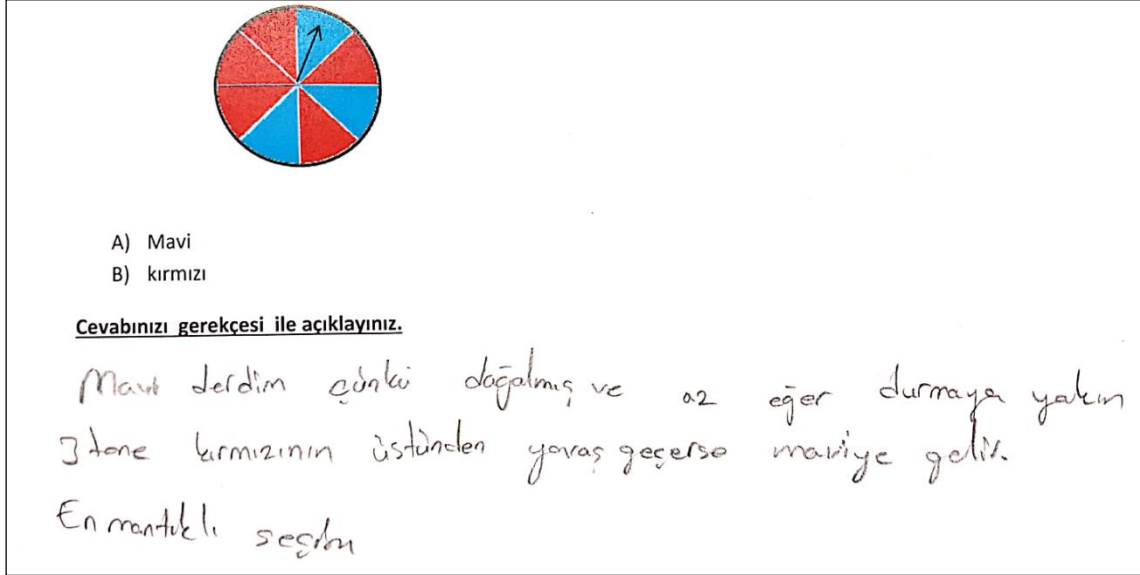 A) Mavi
B) kırmızı
Cevabınızı gerekçesi ile açıklayınız.
Mavi derdim çünkü dağılmış ve az eğer durmaya yakın
3 tane kırmızının üstünden yavaş geçerse maviye gelir.
En mantıklı